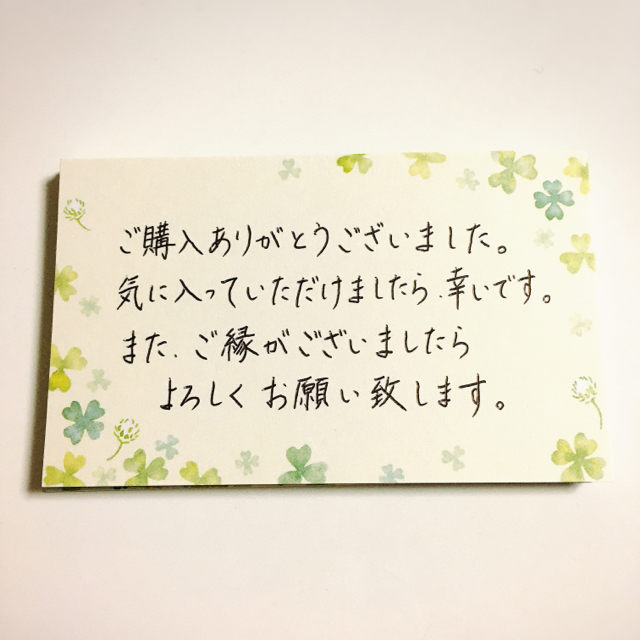 ご購入ありがとうございました。
気に入っていただけましたら、幸いです。
また、ご縁がございましたら
よろしくお願い致します。